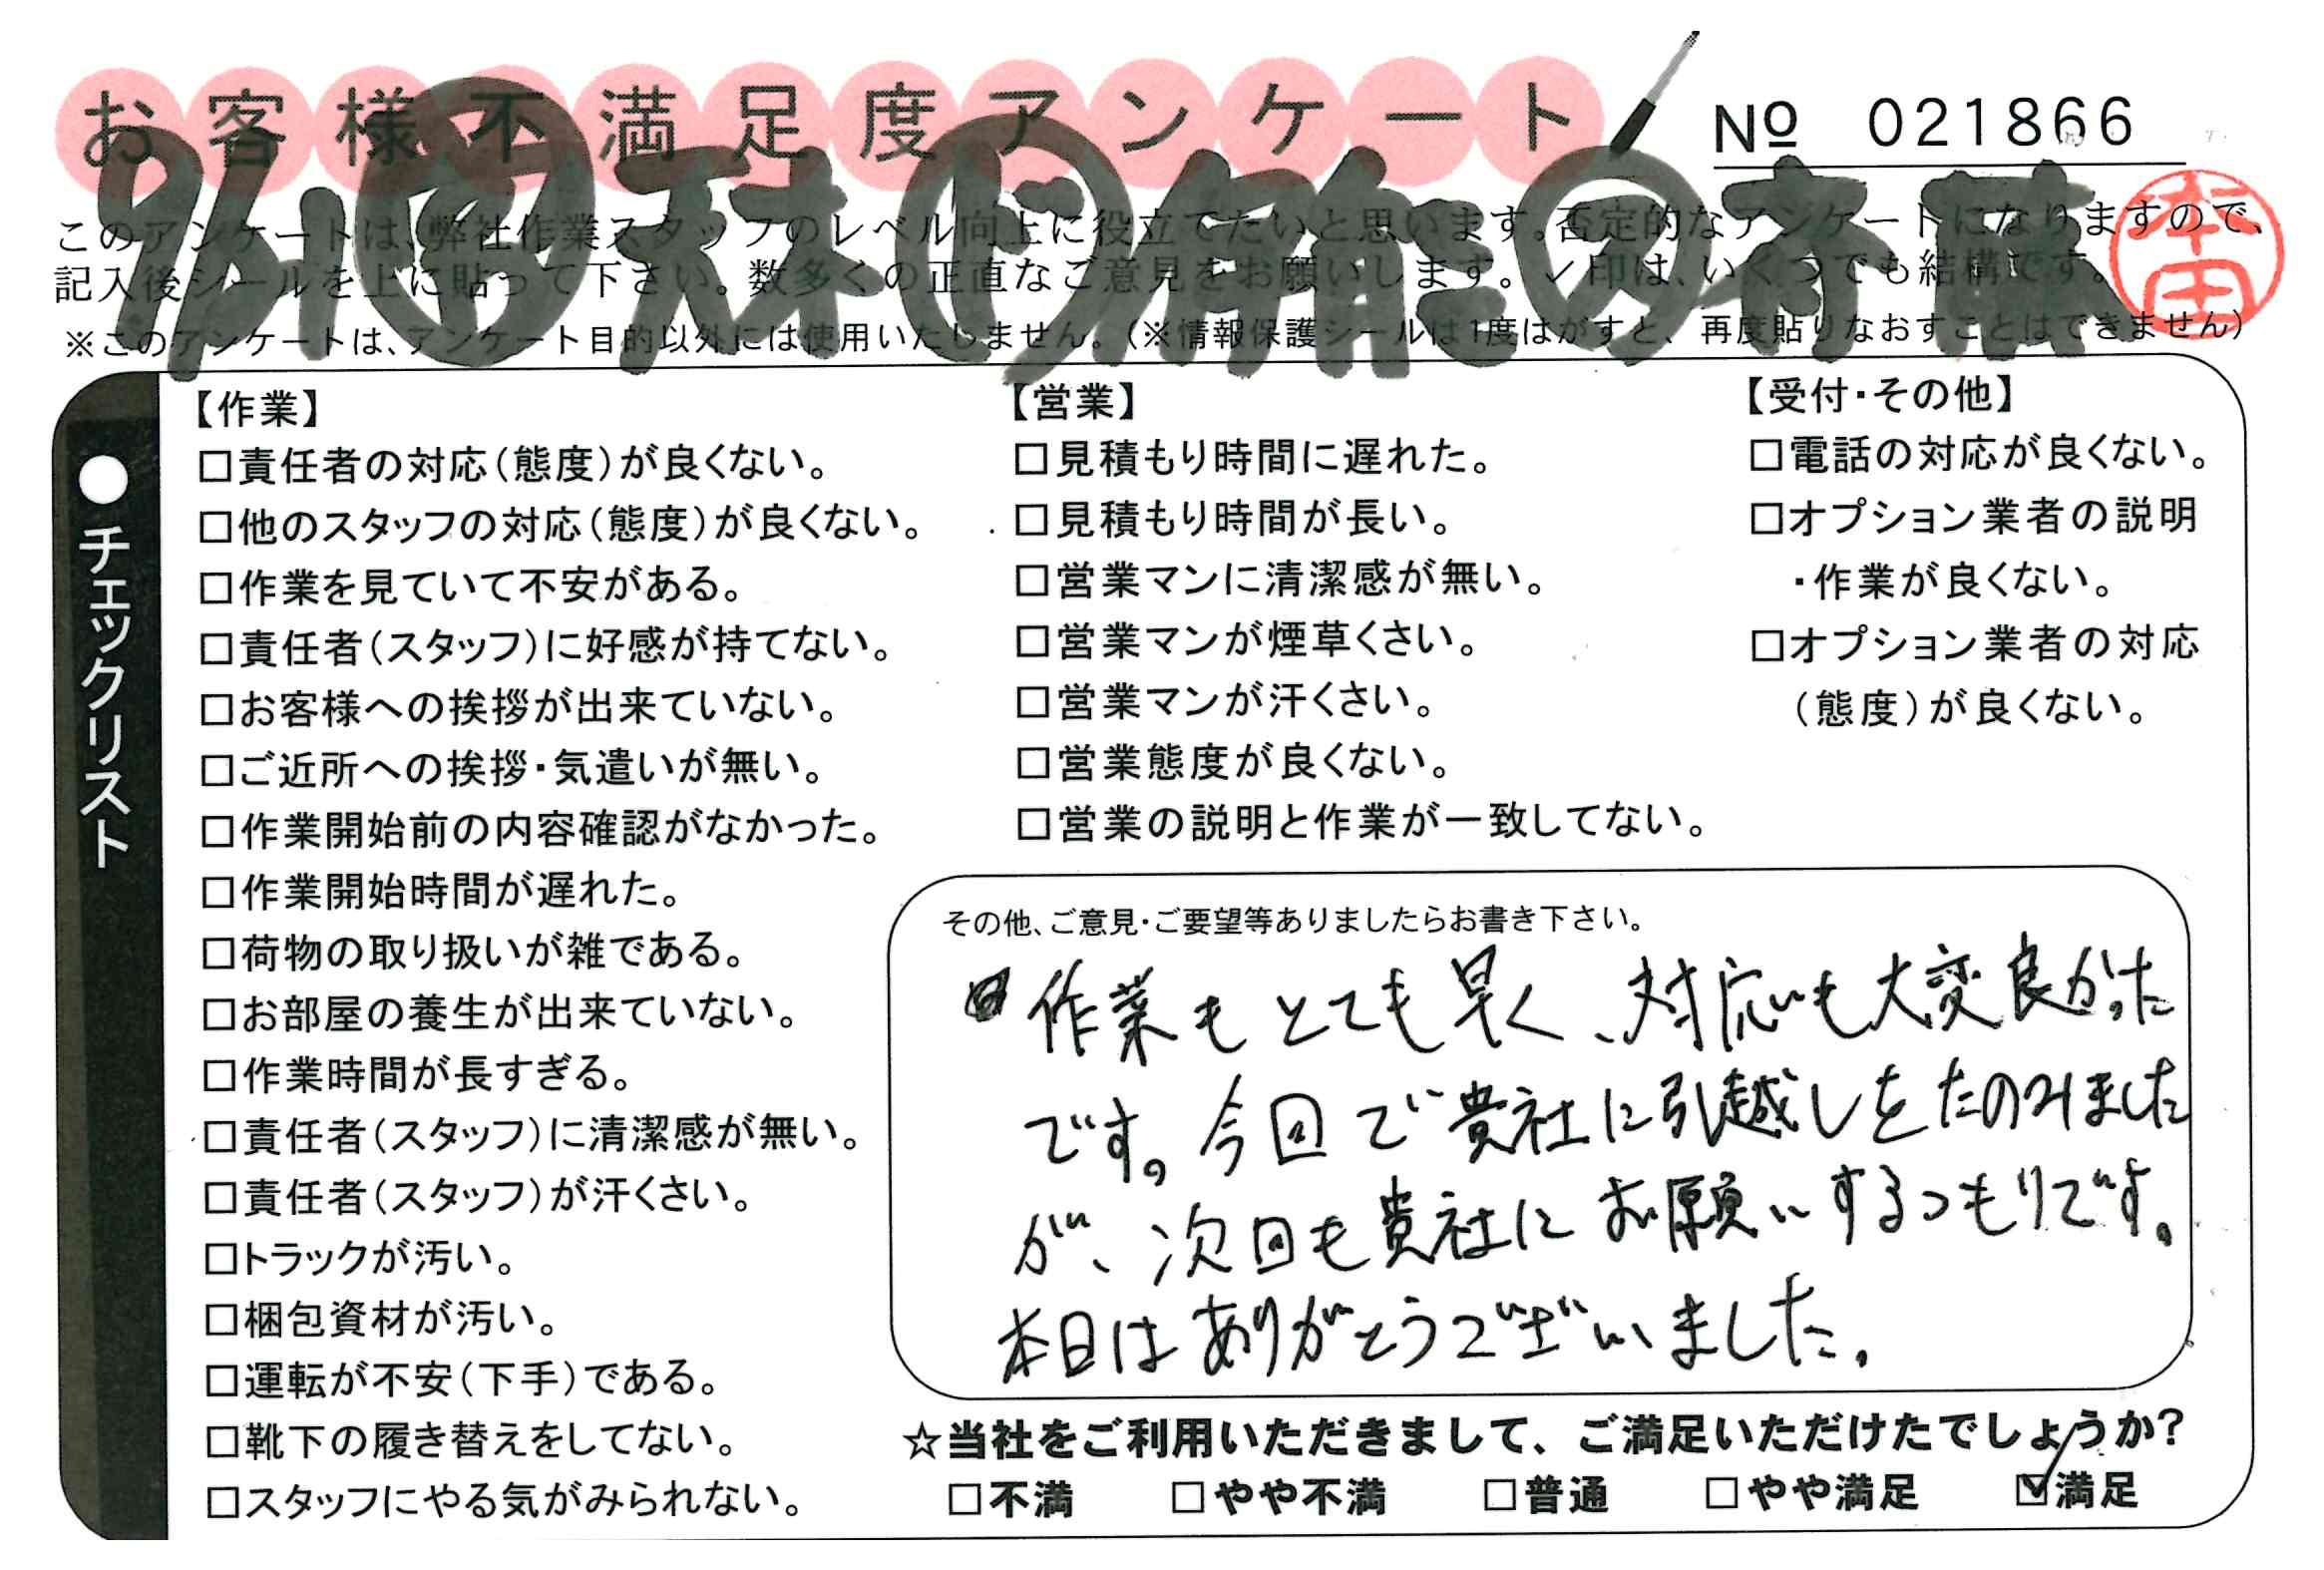 お客様不満足度アンケート
№ 021866
このアンケートは、弊社作業スタッフのレベル向上に役立てたいと思います。否定的なアンケートになりますので、
記入後シールを上に貼って下さい。数多くの正直なご意見をお願いします。✓印は、いくつでも結構です。
※このアンケートは、アンケート目的以外には使用いたしません。(※情報保護シールは1度はがすと、再度貼りなおすことはできません)
本田
●チェックリスト
【作業】
□責任者の対応(態度)が良くない。
□他のスタッフの対応(態度)が良くない。
□作業を見ていて不安がある。
□責任者(スタッフ)に好感が持てない。
□お客様への挨拶が出来ていない。
□ご近所への挨拶・気遣いが無い。
□作業開始前の内容確認がなかった。
□作業開始時間が遅れた。
□荷物の取り扱いが雑である。
□お部屋の養生が出来ていない。
□作業時間が長すぎる。
□責任者(スタッフ)に清潔感が無い。
□責任者(スタッフ)が汗くさい。
□トラックが汚い。
□梱包資材が汚い。
□運転が不安(下手)である。
□靴下の履き替えをしてない。
□スタッフにやる気がみられない。
【営業】
□見積もり時間に遅れた。
□見積もり時間が長い。
□営業マンに清潔感が無い。
□営業マンが煙草くさい。
□営業マンが汗くさい。
□営業態度が良くない。
□営業の説明と作業が一致してない。
【受付・その他】
□電話の対応が良くない。
□オプション業者の説明
・作業が良くない。
□オプション業者の対応
(態度)が良くない。
その他、ご意見・ご要望等ありましたらお書き下さい。
作業もとても早く、対応いも大変良かった
です。今回で貴社に引越しをたのみました
が、次回も貴社にお願いするつもりです。
本日はありがとうございました。
☆当社をご利用いただきまして、ご満足いただけたでしょうか?
□不満 □やや不満 □普通 □やや満足 ☑満足